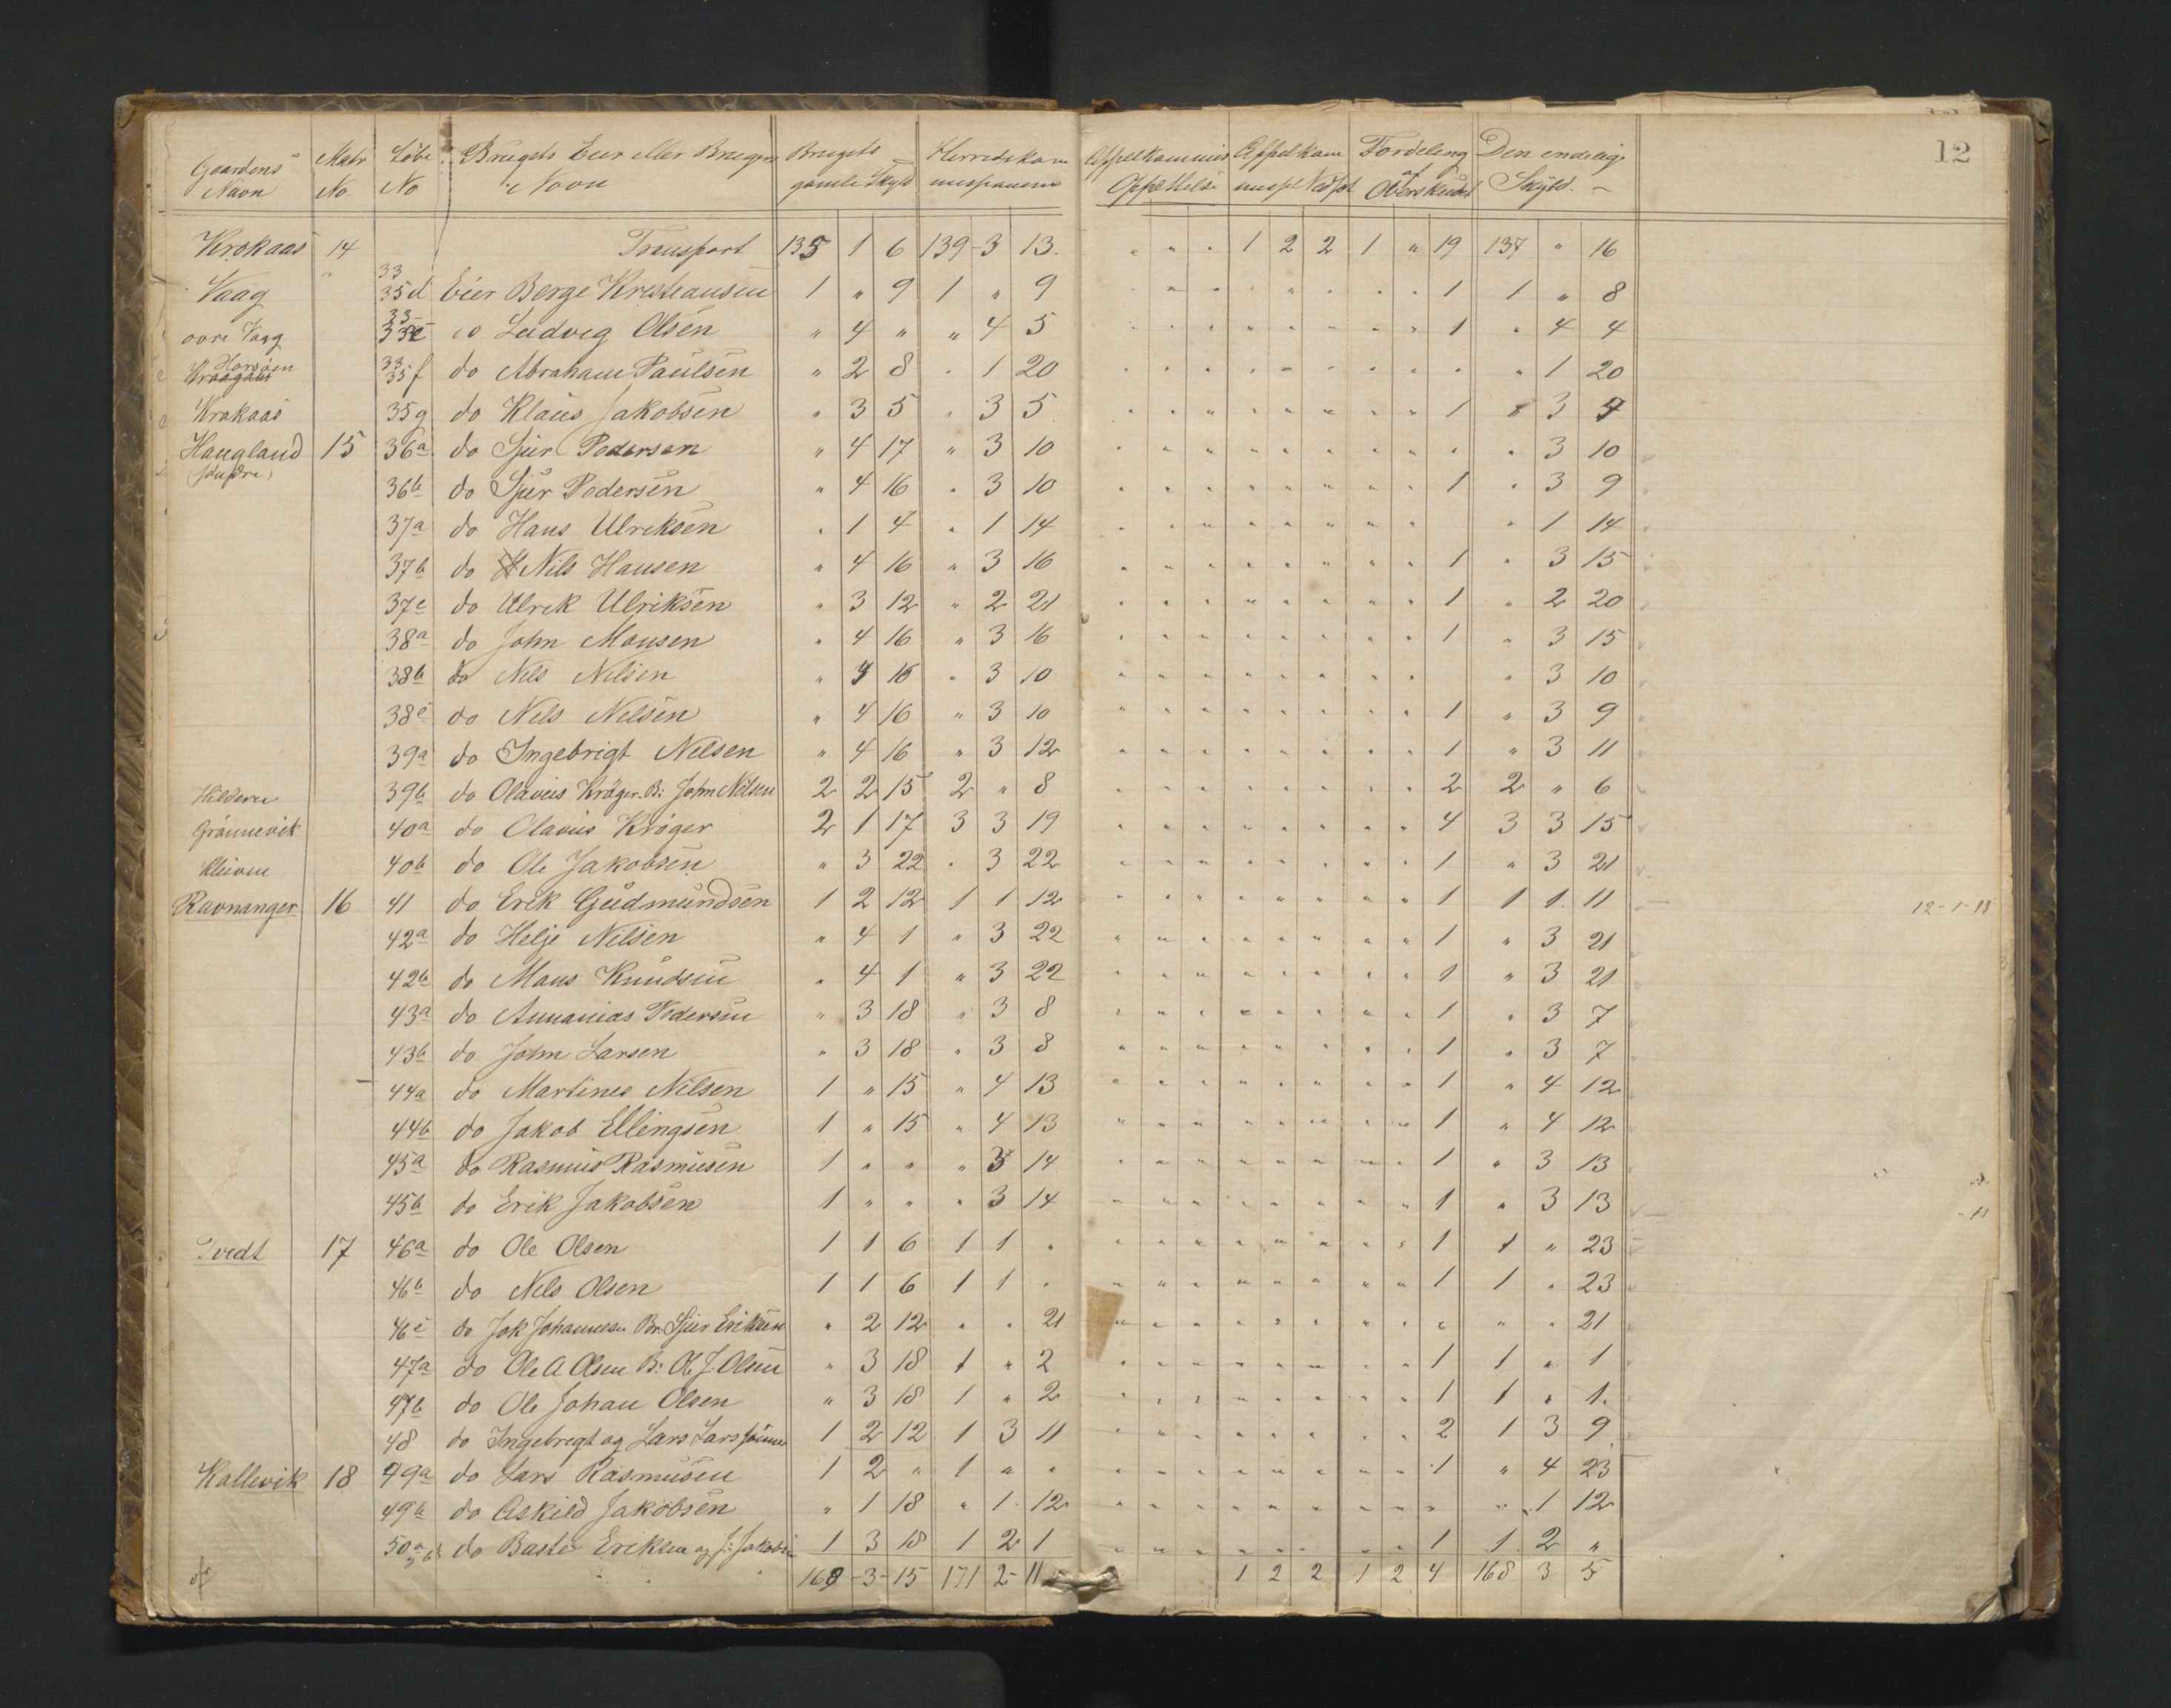 12
Gaardens Navn | Matr No | Løbe No | Brugets Eier eller Brugers Navn | Brugets gamle Skyld | Herredskommissionens | Appelkommis Opsættelse | Appelkommissi Nedsæt | Fordeling af Overskudet | Den endelige Skyld. –
Krokaas | 14 | | Transport | 135 | 1 | 6 | 139 | 3 | 13. | " | " | " | 1 | 2 | 2 | 1 | " | 19 | 137 | " | 16
Vaag | " | 33 35d | Eier Berge Kristiansen | 1 | " | 9 | 1 | " | 9 | 1 | 1 | " | 8
øvre Vaag | | 33 35e | do Ludvig Olsen | " | 4 | " | " | 4 | 5 | 1 | " | 4 | 4
Horsøen | | 33 35f | do Abraham Paulsen | " | 2 | 8 | " | 1 | 20 | " | " | 1 | 20
Krokaas | | 35g | do Klaus Jakobsen | " | 3 | 5 | " | 3 | 5 | 1 | " | 3 | 4
Haugland (søndre) | 15 | 36a | do Sjur Pedersen | " | 4 | 17 | " | 3 | 10 | " | " | 3 | 10
36b | do Sjur Pedersen | " | 4 | 16 | " | 3 | 10 | 1 | " | 3 | 9
37a | do Hans Ulriksen | " | 1 | 4 | " | 1 | 14 | | " | 1 | 14
37b | do Nils Hansen | " | 4 | 16 | " | 3 | 16 | 1 | " | 3 | 15
37c | do Ulrik Ulriksen | " | 3 | 12 | " | 2 | 21 | 1 | " | 2 | 20
38a | do John Monsen | " | 4 | 16 | " | 3 | 16 | 1 | " | 3 | 15
38b | do Nils Nilsen | " | 4 | 16 | " | 3 | 10 | | " | 3 | 10
38c | do Nils Nilsen | " | 4 | 16 | " | 3 | 10 | 1 | " | 3 | 9
39a | do Ingebrigt Nilsen | " | 4 | 16 | " | 3 | 12 | 1 | " | 3 | 11
Hilderen | | 39b | do Olavius Krøger. B: John Nilsen | 2 | 2 | 15 | 2 | " | 8 | 2 | 2 | " | 6
Grønnevik | | 40a | do Olavius Krøger | 2 | 1 | 17 | 3 | 3 | 19 | 4 | 3 | 3 | 15
Kleiven | | 40b | do Ole Jakobsen | " | 3 | 22 | " | 3 | 22 | 1 | " | 3 | 21
Ravnanger | 16 | 41 | do Erik Gudmundsen | 1 | 2 | 12 | 1 | 1 | 12 | 1 | 1 | 1 | 11 | 12-1-18
42a | do Helje Nilsen | " | 4 | 1 | " | 3 | 22 | 1 | " | 3 | 21
42b | do Mons Knudsen | " | 4 | 1 | " | 3 | 22 | 1 | " | 3 | 21
43a | do Annanias Pedersen | " | 3 | 18 | " | 3 | 8 | 1 | " | 3 | 7
43b | do John Larsen | " | 3 | 18 | " | 3 | 8 | 1 | " | 3 | 7
44a | do Martines Nilsen | 1 | " | 15 | " | 4 | 13 | 1 | " | 4 | 12
44b | do Jakob Ellingsen | 1 | " | 15 | " | 4 | 13 | 1 | " | 4 | 12
45a | do Rasmus Rasmusen | 1 | " | " | " | 3 | 14 | 1 | " | 3 | 13
45b | do Erik Jakobsen | 1 | " | " | " | 3 | 14 | 1 | " | 3 | 13
Tvedt | 17 | 46a | do Ole Olsen | 1 | 1 | 6 | 1 | 1 | " | 1 | 1 | " | 23
46b | do Nils Olsen | 1 | 1 | 6 | 1 | 1 | " | 1 | 1 | " | 23
46c | do Jok Johannesen Br. Sjur Eriksen | " | 2 | 12 | " | " | 21 | " | " | " | 21
47a | do Ole A Olsen B: Ole J. Olsen | " | 3 | 18 | 1 | " | 2 | 1 | 1 | " | 1
47b | do Ole Johan Olsen | " | 3 | 18 | 1 | " | 2 | 1 | 1 | " | 1.
48 | do Ingebrigt og Lars Larssønner | 1 | 2 | 12 | 1 | 3 | 11 | 2 | 1 | 3 | 9
Kallevik | 18 | 49a | do Lars Rasmusen | 1 | 2 | " | 1 | " | " | 1 | " | 4 | 23
49b | do Askild Jakobsen | " | 1 | 18 | " | 1 | 12 | " | " | 1 | 12
50a og b | do Baste Eriksen og J: Jakobsen | 1 | 3 | 18 | 1 | 2 | 1 | 1 | 1 | 2 | "
168 | 3 | 15 | 171 | 2 | 11 | 1 | 2 | 2 | 1 | 2 | 4 | 168 | 3 | 5